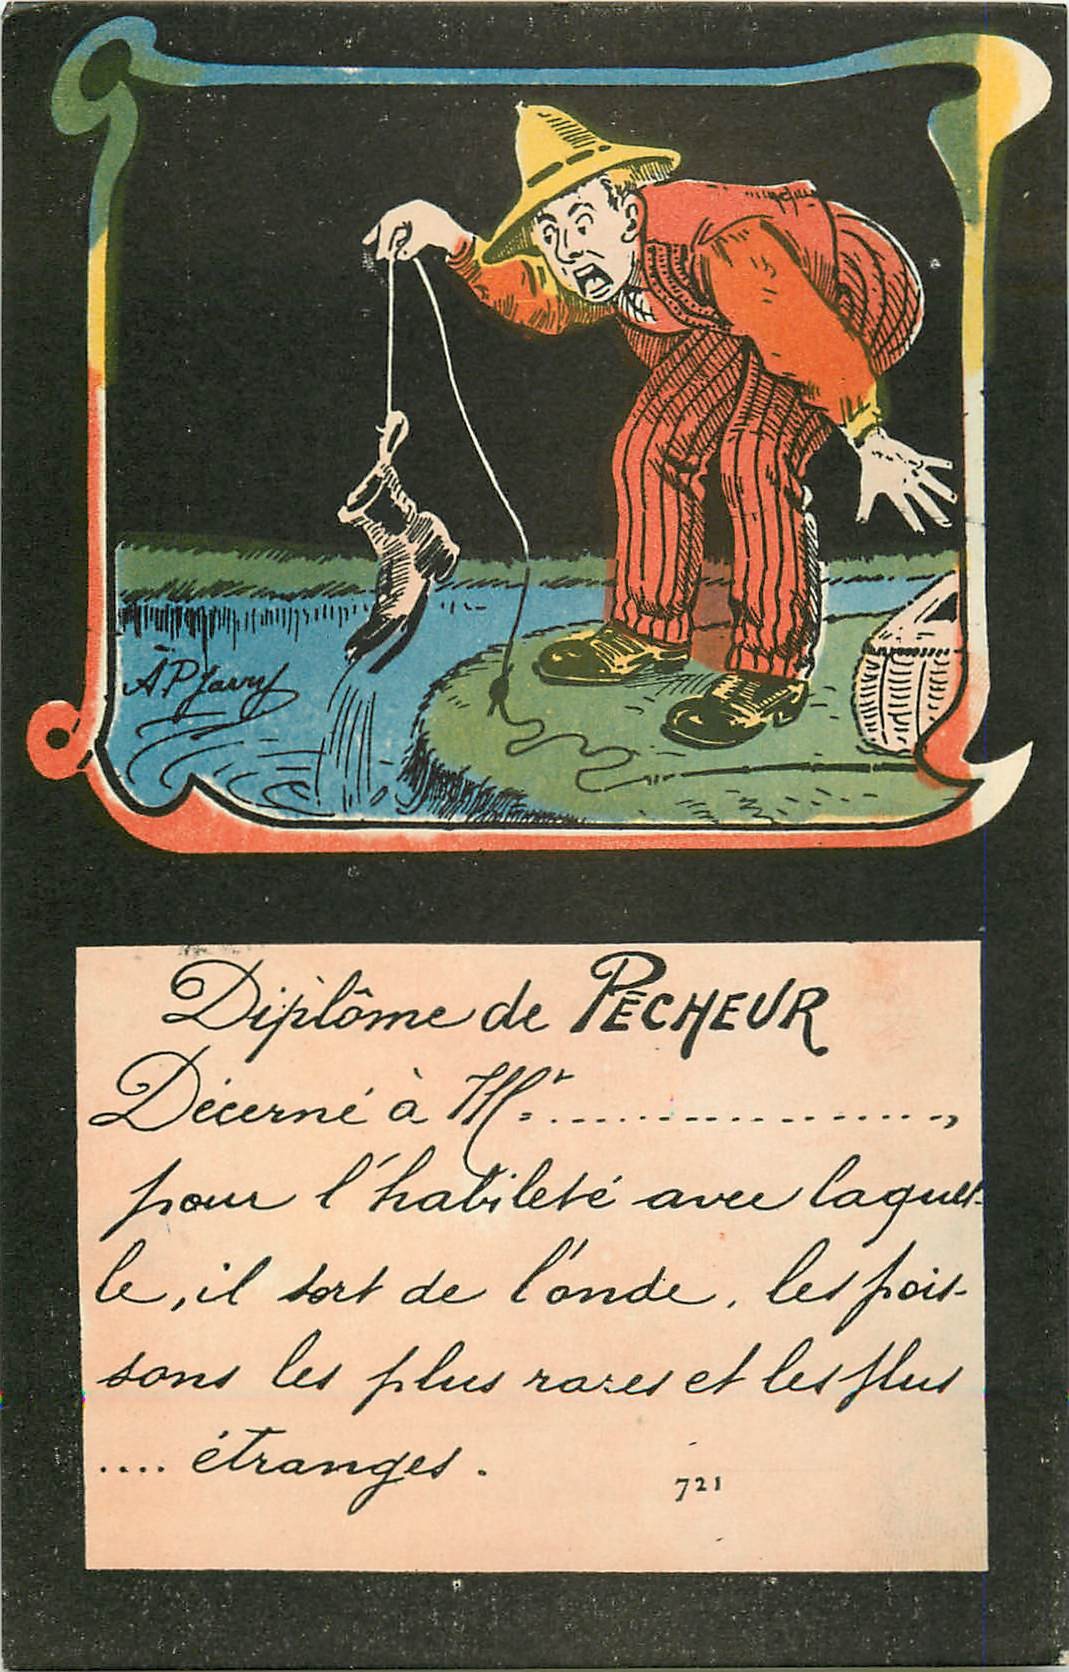 À P Jarry
Diplôme de PÊCHEUR
Décerné à Mr ..................,
pour l'habileté avec laquel-
le, il sort de l'onde, les pois-
sons les plus rares et les plus
.... étranges.
721